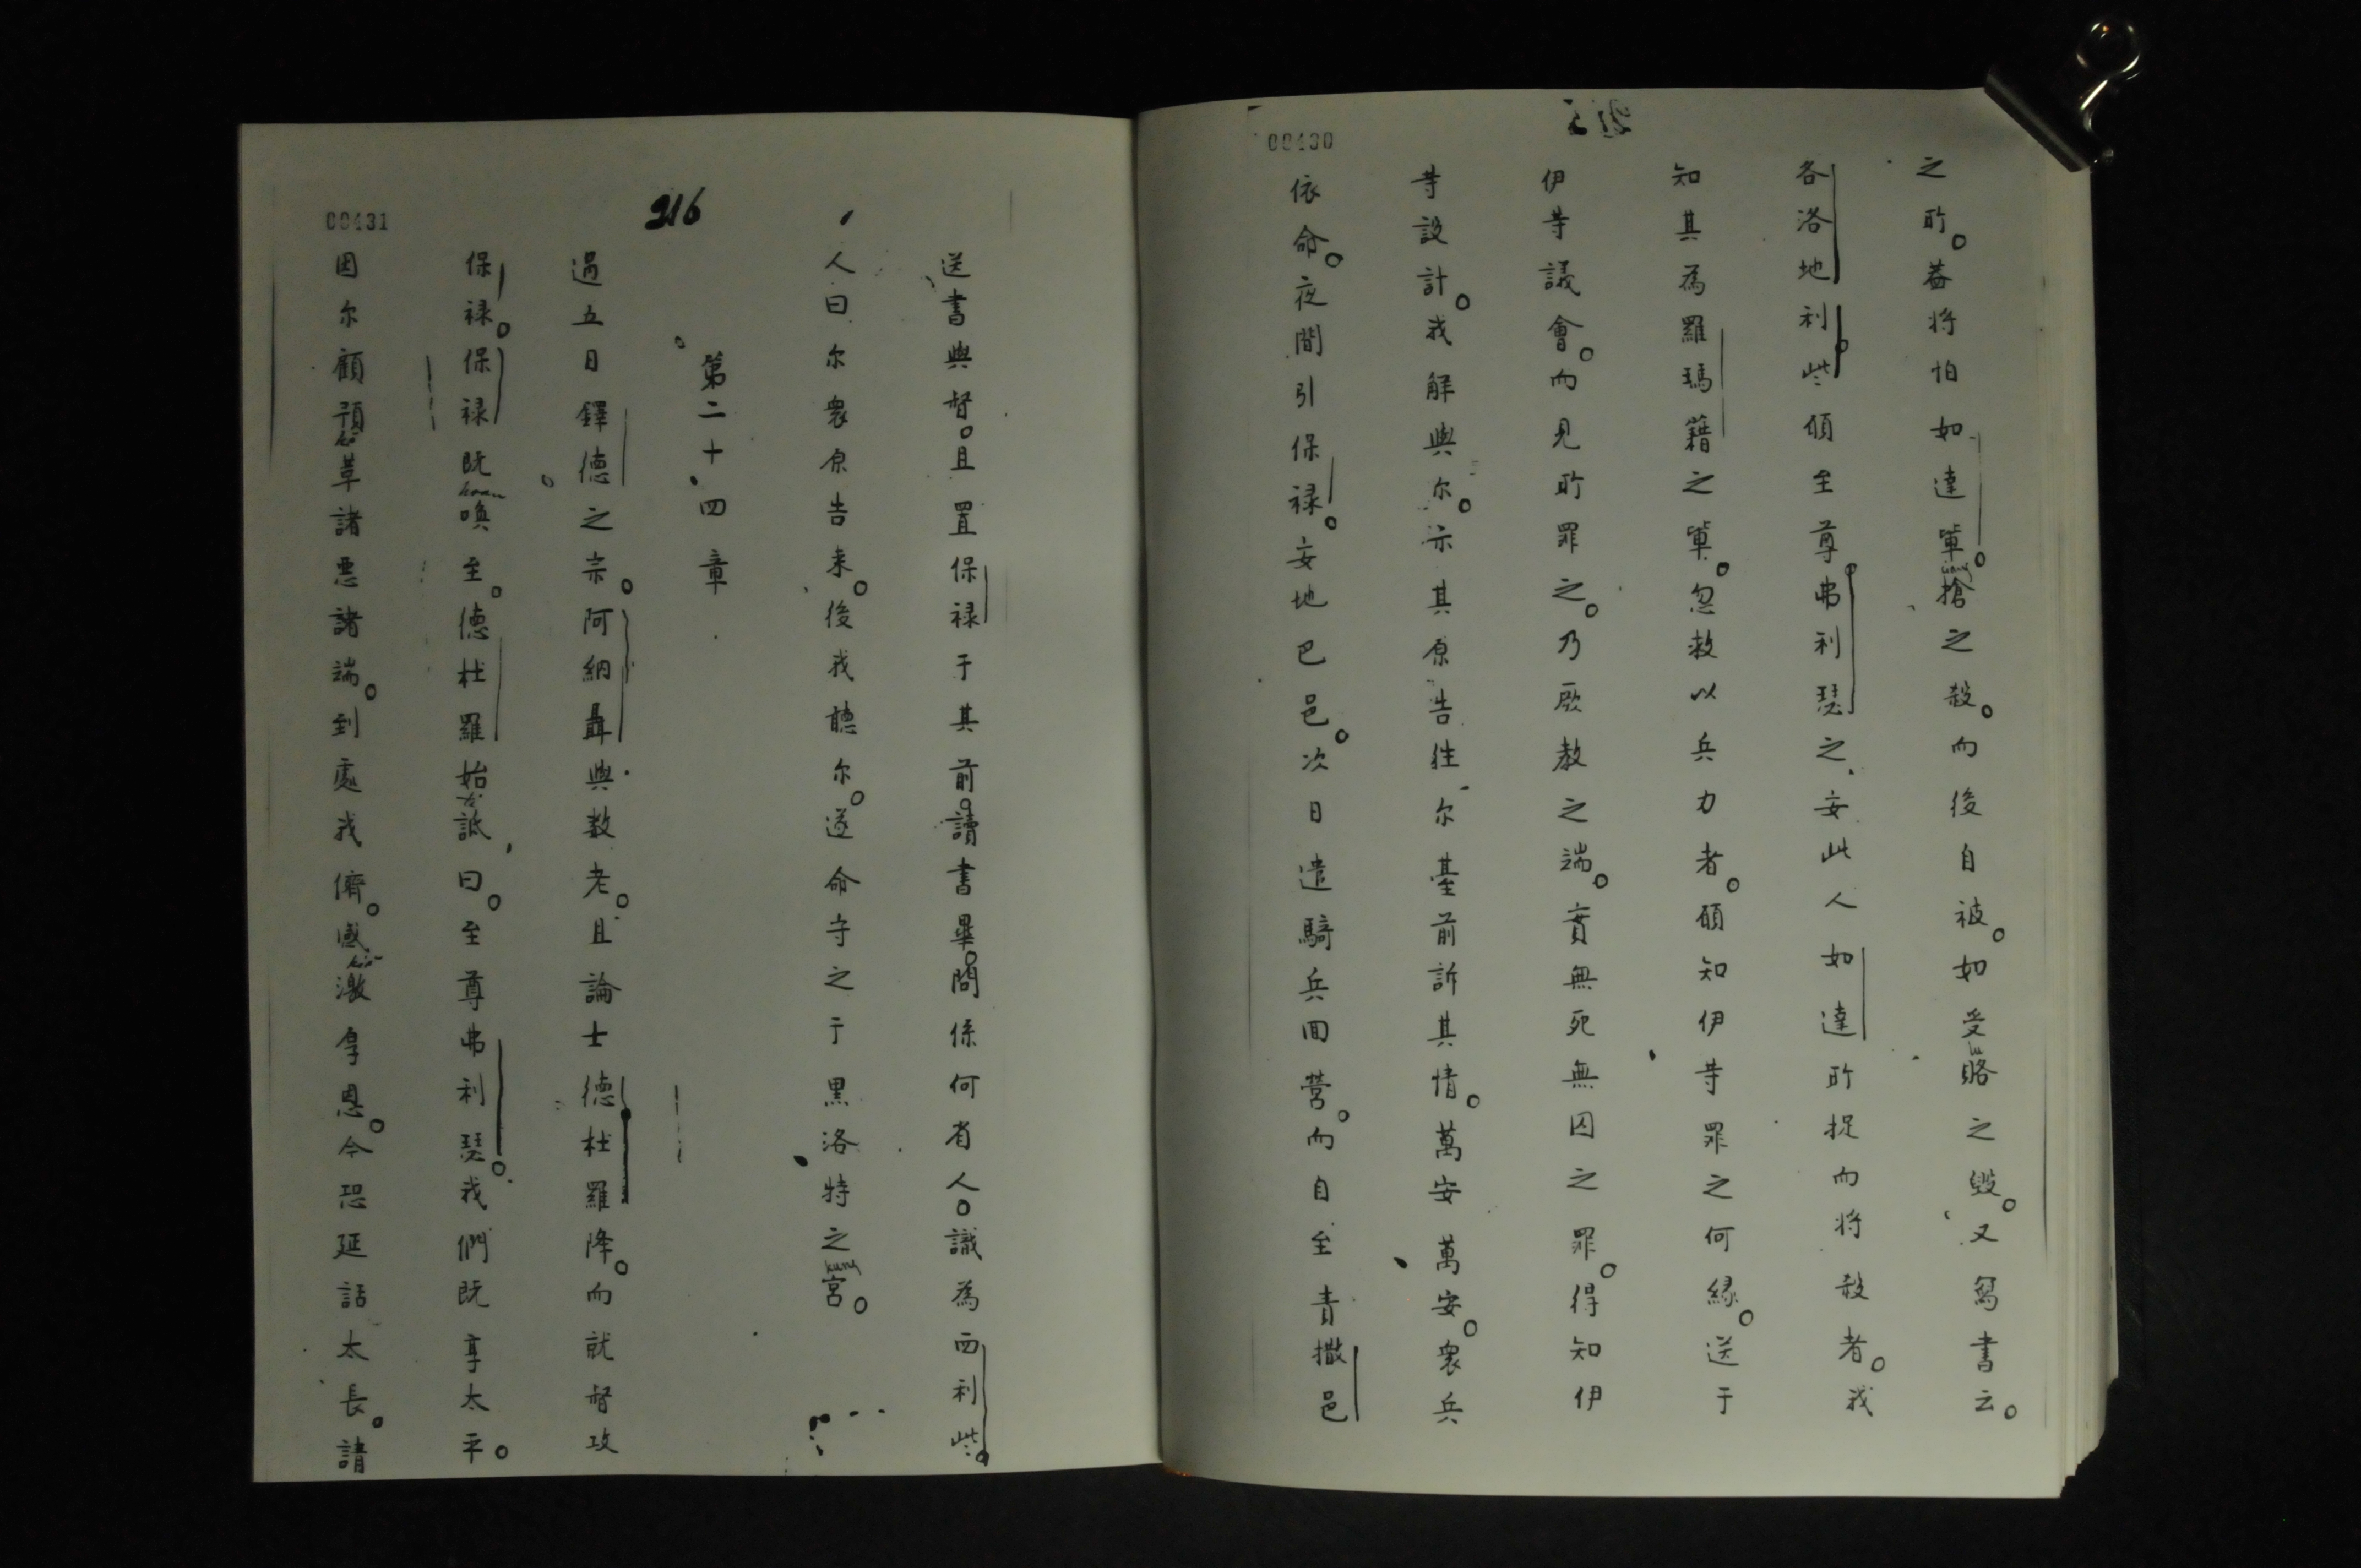 215
00430
之所。蓋將怕如達軰。搶之殺。而後自被。如受賂之毀。又寫書云。
各洛地利。些頎至尊弗利瑟之、妄此人如達所捉而將殺者。我
知其為羅瑪籍之軰。忽救以兵力者。頎知伊等罪之何緣。送于
伊等議會。而見所罪之。乃厥教之端。實無死無囚之罪。得知伊
等設計。我解與尔。示其原告徃尔䑓前訴其情。萬安萬安。衆兵
依命。夜間引保禄。妄地巴邑。次日遣騎兵囬營。而自至責撒邑
送書與督。且置保禄于其前。讀書畢。問係何省人。識為西利些。
人曰尔衆原告来。後我聽尔。遂命守之于黑洛特之宮。
216
第二十四章
過五日鐸德之宗。阿納聶與数老。且論士德杜羅降。而就督攻
保禄。保禄既喚至。德杜羅始詆曰。至尊弗利瑟。我們既享太平。
因尔顧預革諸悪諸端。到處我儕。感激拿恩。今恐延話太長。請
00431